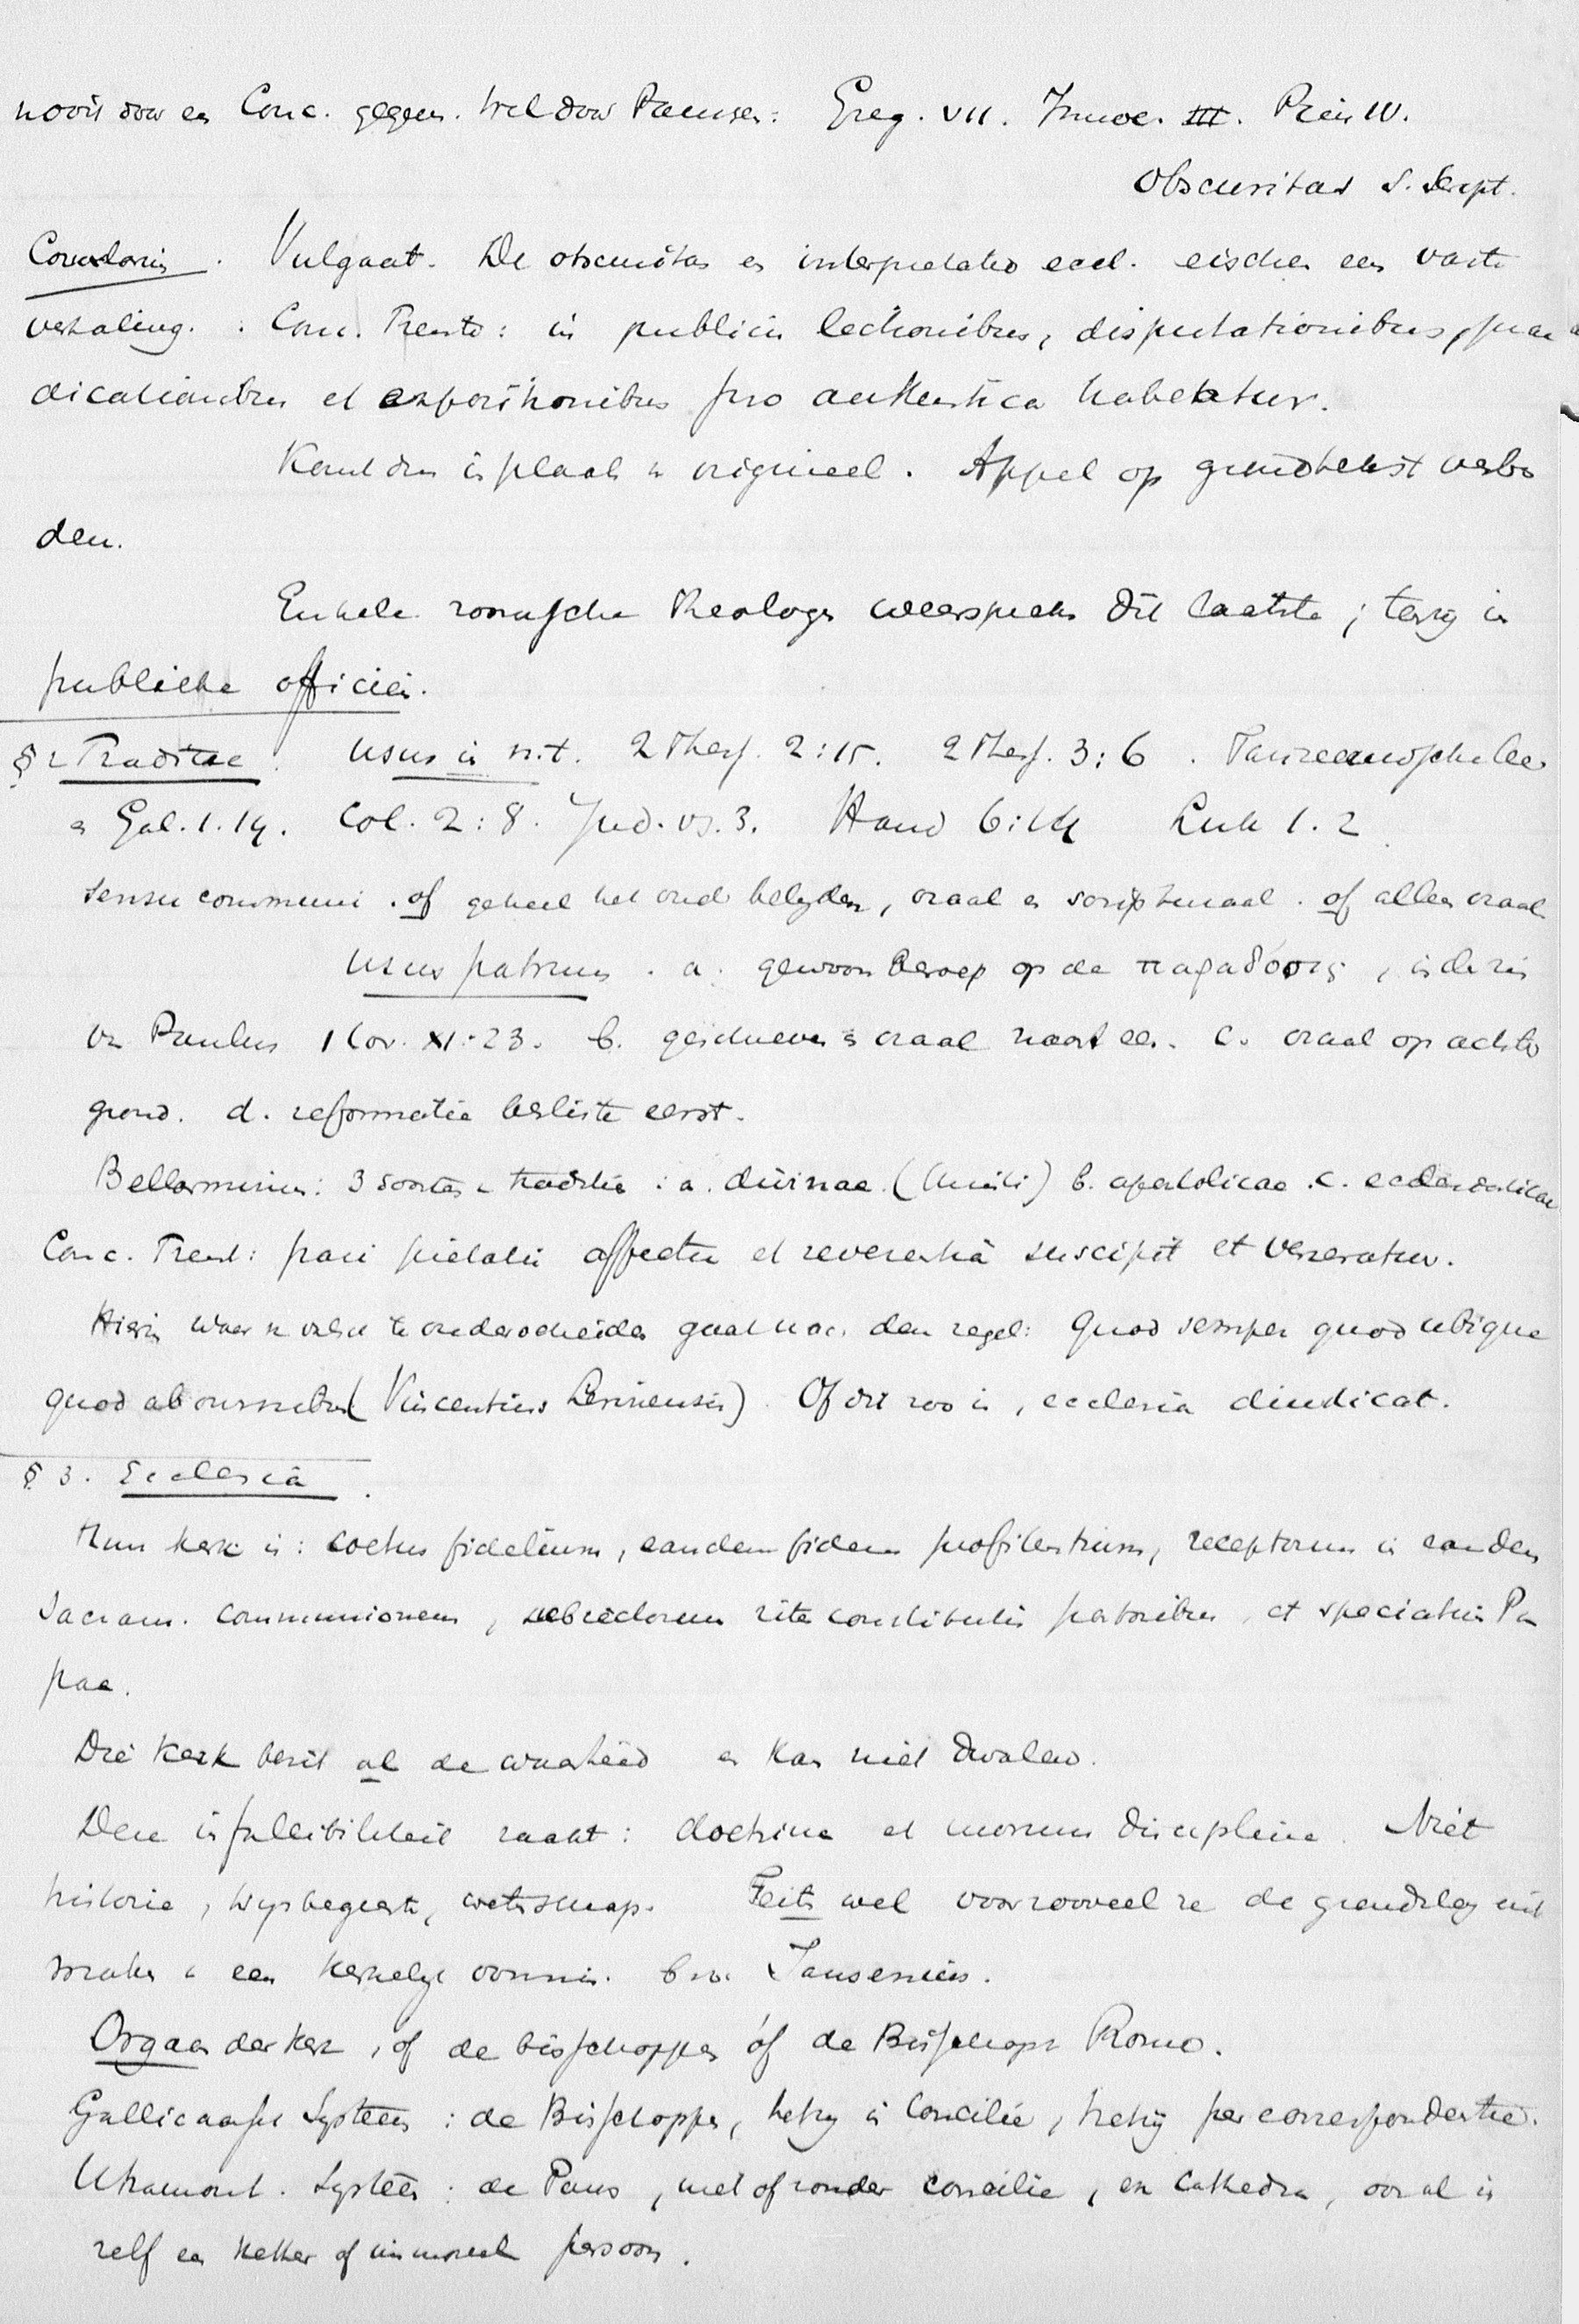 nooit door een Conc. gegeven. Wel door Pausen: Greg. VII. Innoc. III. Pius IV.
Obscuritas S. Script.
Corollarium. Vulgaat. De obscuritas en interpretatio eccl. eischen een vaste
vertaling. Conc. Trente: in publicis lectionibus, disputationibus, prae
dicationibus et expositionibus pro authentica habeatur.
Komt dus in plaats v origineel. Appel op grondtekst verbo
den.
Enkele roomsche theologen weerspreken dit laatste; tenzij in
publieke officien.
§ 2 Traditie. Usus in n.t. 2 Thess. 2:15. 2 Thess. 3:6.
en Gal. 1.14. Col. 2:8. Jud. vs. 3. Hand 6:14 Luk 1.2
sensu communi. of geheel het oude belyden, oraal en scripturaal. of alleen oraal
usus patrum. a. gewoon beroep op de παράδοσις, in de zin
van Paulus 1 Cor. XI:23. b. geschreven en oraal naast een. c. oraal op achter
grond. d. reformatie besliste eerst.
Bellarminus: 3 soorten v traditie: a. divinae (Christi) b. apostolicae. c. ecclesiasticae
Conc. Trent: pari pietatis affectu et reverentiâ suscipit et veneratur.
Hierin waar v valsch te onderscheiden gaat naar den regel: Quod semper quod ubique
quod ab omnibus (Vincentius Lerinensis). Of dit zoo is, ecclesia diudicat.
§ 3. Ecclesia.
Hun kerk is: coetus fidelium, eandem fidem profitentium, receptorum in eandem
Sacram. communionem, subiectorum rite constitutis pastoribus, et speciatim Pa
pae.
Die kerk bezit al de waarheid en kan niet dwalen.
Deze infallibiliteit raakt: doctrina et morum disciplina. Niet
historie, wysbegeerte, wetenschap. Feiten wel voorzooveel ze de grondslag uit
maken v een kerkelyk vonnis. bv. Jansenius.
Orgaan der kerk, of de bisschoppen óf de Bisschop v Rome.
Gallicaansch Systeem: de Bisschoppen, hetzy in Concilie, hetzij per correspondentie.
Ultramont. Systeem: de Paus, met of zonder concilie, ex Cathedra, ook al is
zelf een ketter of immoreel persoon.